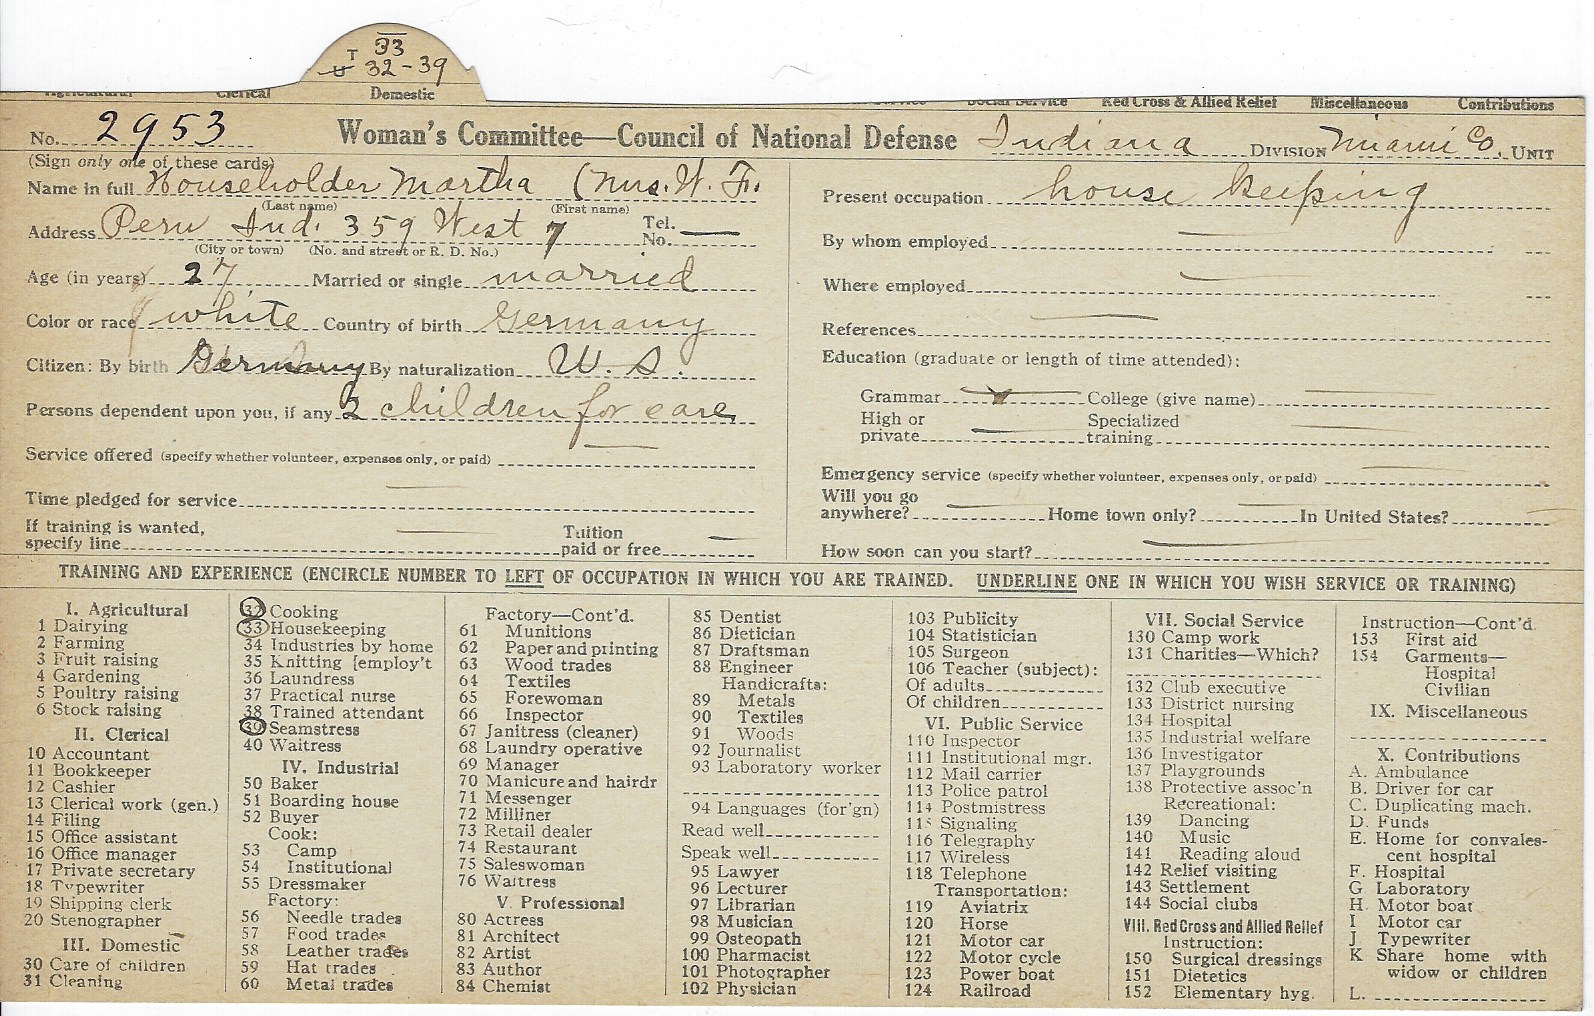 33
T
U 32-39
Agricultural Clerical Domestic Service Social Service Red Cross & Allied Relief Miscellaneous Contributions
No. 2953 Woman's Committee—Council of National Defense Indiana DIVISION Miami Co. UNIT
(Sign only one of these cards)
Name in full Householder Martha (Mrs. W. F.
(Last name) (First name)
Address Peru Ind. 359 West 7 Tel. No. —
(City or town) (No. and street or R. D. No.)
Age (in years) 27 Married or single married
Color or race white Country of birth Germany
Citizen: By birth Germany By naturalization U. S.
Persons dependent upon you, if any 2 children for care
Service offered (specify whether volunteer, expenses only, or paid) —
Time pledged for service —
If training is wanted,
specify line — Tuition paid or free —
Present occupation house keeping
By whom employed —
Where employed —
References —
Education (graduate or length of time attended):
Grammar College (give name) —
High or private — Specialized training —
Emergency service (specify whether volunteer, expenses only, or paid) —
Will you go
anywhere? — Home town only? — In United States? —
How soon can you start? —
TRAINING AND EXPERIENCE (ENCIRCLE NUMBER TO LEFT OF OCCUPATION IN WHICH YOU ARE TRAINED. UNDERLINE ONE IN WHICH YOU WISH SERVICE OR TRAINING)
I. Agricultural
1 Dairying
2 Farming
3 Fruit raising
4 Gardening
5 Poultry raising
6 Stock raising
II. Clerical
10 Accountant
11 Bookkeeper
12 Cashier
13 Clerical work (gen.)
14 Filing
15 Office assistant
16 Office manager
17 Private secretary
18 Typewriter
19 Shipping clerk
20 Stenographer
III. Domestic
30 Care of children
31 Cleaning
32 Cooking
33 Housekeeping
34 Industries by home
35 Knitting [employ't
36 Laundress
37 Practical nurse
38 Trained attendant
39 Seamstress
40 Waitress
IV. Industrial
50 Baker
51 Boarding house
52 Buyer
Cook:
53 Camp
54 Institutional
55 Dressmaker
Factory:
56 Needle trades
57 Food trades
58 Leather trades
59 Hat trades
60 Metal trades
Factory—Cont'd.
61 Munitions
62 Paper and printing
63 Wood trades
64 Textiles
65 Forewoman
66 Inspector
67 Janitress (cleaner)
68 Laundry operative
69 Manager
70 Manicure and hairdr
71 Messenger
72 Milliner
73 Retail dealer
74 Restaurant
75 Saleswoman
76 Waitress
V. Professional
80 Actress
81 Architect
82 Artist
83 Author
84 Chemist
85 Dentist
86 Dietician
87 Draftsman
88 Engineer
Handicrafts:
89 Metals
90 Textiles
91 Woods
92 Journalist
93 Laboratory worker
94 Languages (for'gn)
Read well
Speak well
95 Lawyer
96 Lecturer
97 Librarian
98 Musician
99 Osteopath
100 Pharmacist
101 Photographer
102 Physician
103 Publicity
104 Statistician
105 Surgeon
106 Teacher (subject):
Of adults
Of children
VI. Public Service
110 Inspector
111 Institutional mgr.
112 Mail carrier
113 Police patrol
114 Postmistress
115 Signaling
116 Telegraphy
117 Wireless
118 Telephone
Transportation:
119 Aviatrix
120 Horse
121 Motor car
122 Motor cycle
123 Power boat
124 Railroad
VII. Social Service
130 Camp work
131 Charities—Which?
132 Club executive
133 District nursing
134 Hospital
135 Industrial welfare
136 Investigator
137 Playgrounds
138 Protective assoc'n
Recreational:
139 Dancing
140 Music
141 Reading aloud
142 Relief visiting
143 Settlement
144 Social clubs
VIII. Red Cross and Allied Relief
Instruction:
150 Surgical dressings
151 Dietetics
152 Elementary hyg.
Instruction—Cont'd.
153 First aid
154 Garments—
Hospital
Civilian
IX. Miscellaneous
X. Contributions
A. Ambulance
B. Driver for car
C. Duplicating mach.
D. Funds
E. Home for convales-
cent hospital
F. Hospital
G Laboratory
H. Motor boat
I Motor car
J Typewriter
K Share home with
widow or children
L.